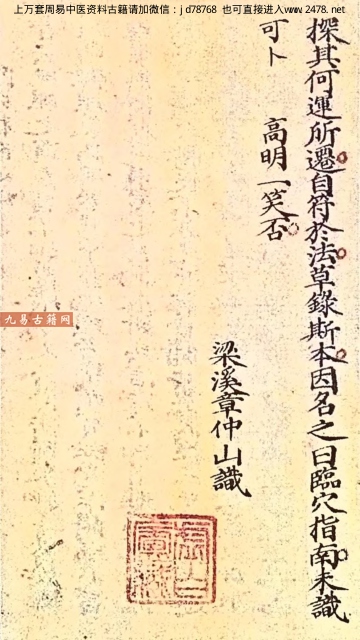 上万套周易中医资料古籍请加微信：jd78768 也可直接进入www.2478.net
探其何運所遷自符於法草錄斯本因名之曰臨穴指南未識
可卜
高明一笑否
梁溪章仲山識
九易古籍网